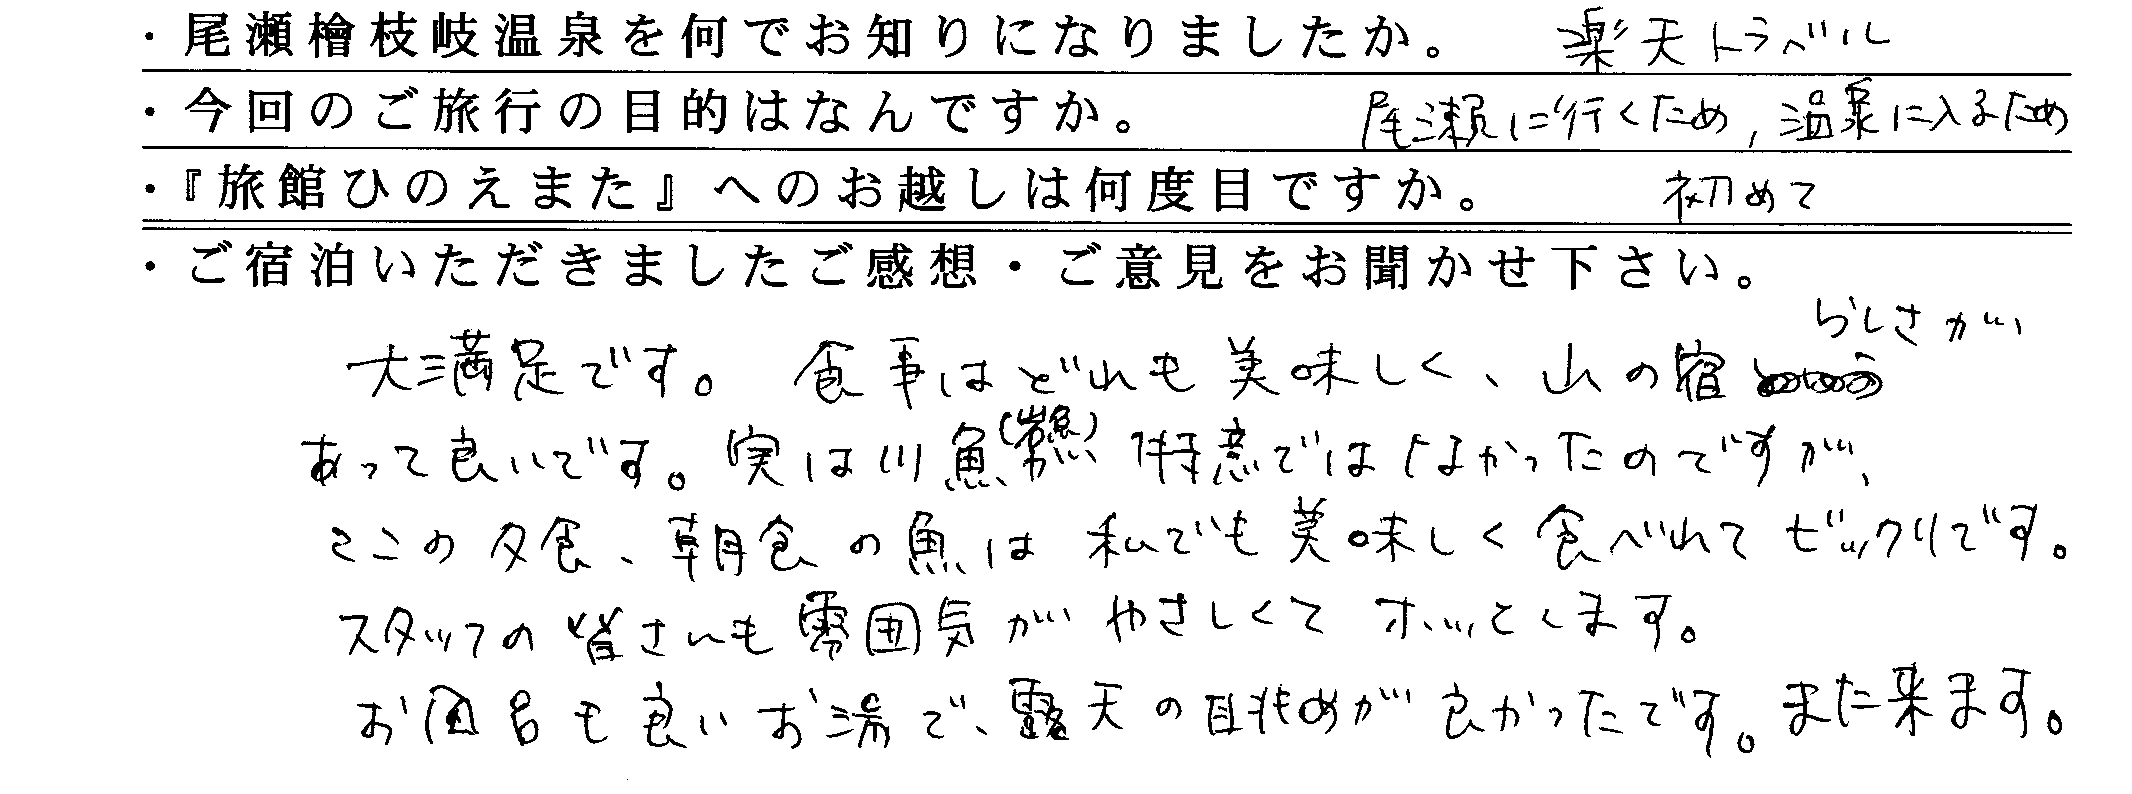 ・尾瀬檜枝岐温泉を何でお知りになりましたか。 楽天トラベル
・今回のご旅行の目的はなんですか。 尾瀬に行くため, 温泉に入るため
・『旅館ひのえまた』へのお越しは何度目ですか。 初めて
・ご宿泊いただきましたご感想・ご意見をお聞かせ下さい。
らしさがい
大満足です。 食事はどれも美味しく、山の宿
あって良いです。実は川魚(岩魚)得意ではなかったのですが、
ここの夕食、朝食の魚は私でも美味しく食べれてビックリです。
スタッフの皆さんも雰囲気がやさしくてホッとします。
お風呂も良いお湯で、露天の眺めが良かったです。また来ます。